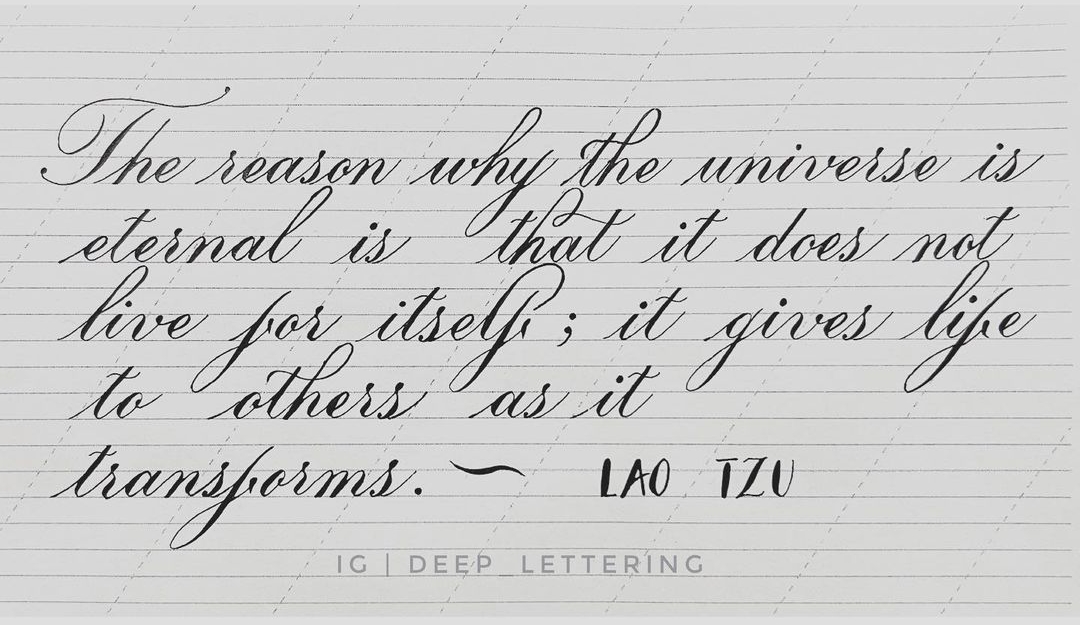 The reason why the universe is
eternal is that it does not
live for itself; it gives life
to others as it
transforms. ~ LAO TZU
IG | DEEP_LETTERING